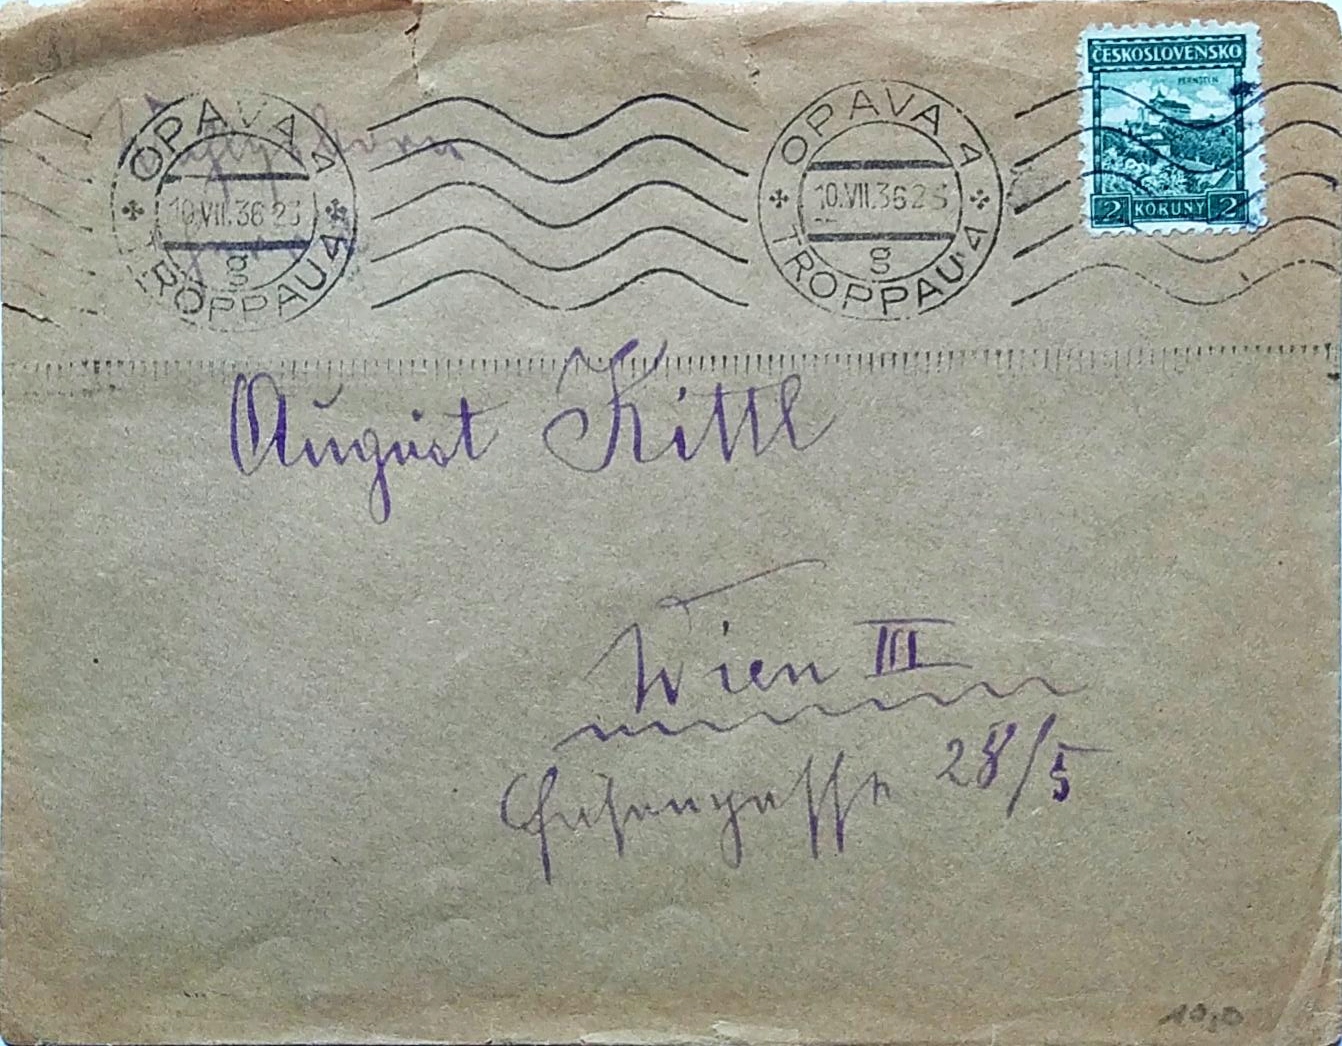 ČESKOSLOVENSKO
PERNŠTEJN
2 KORUNY 2
OPAVA 4
10.VII.36 23
g
TROPPAU 4
OPAVA 4
10.VII.36 23
g
TROPPAU 4
August Kittl
Wien III
28/5